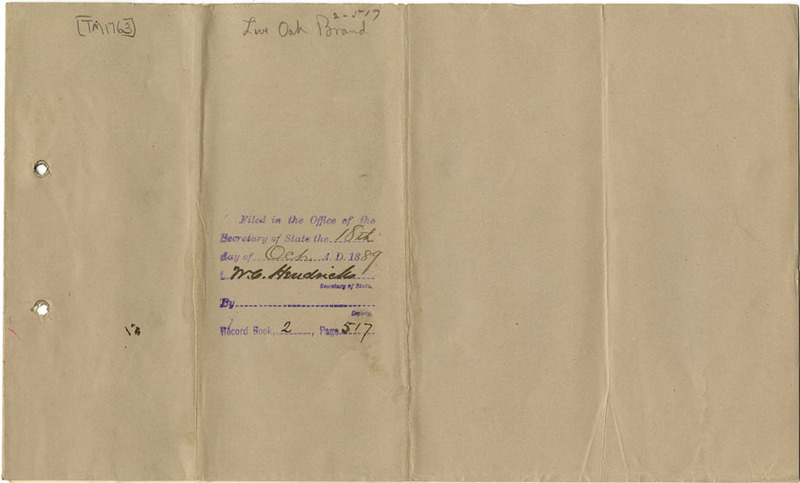 [TM1763]
2-517
Live Oak Brand
Filed in the Office of the
Secretary of State the 18th
day of Oct. A. D. 1889
W. C. Hendricks
Secretary of State.
By
Deputy.
Record Book, 2, Page 517